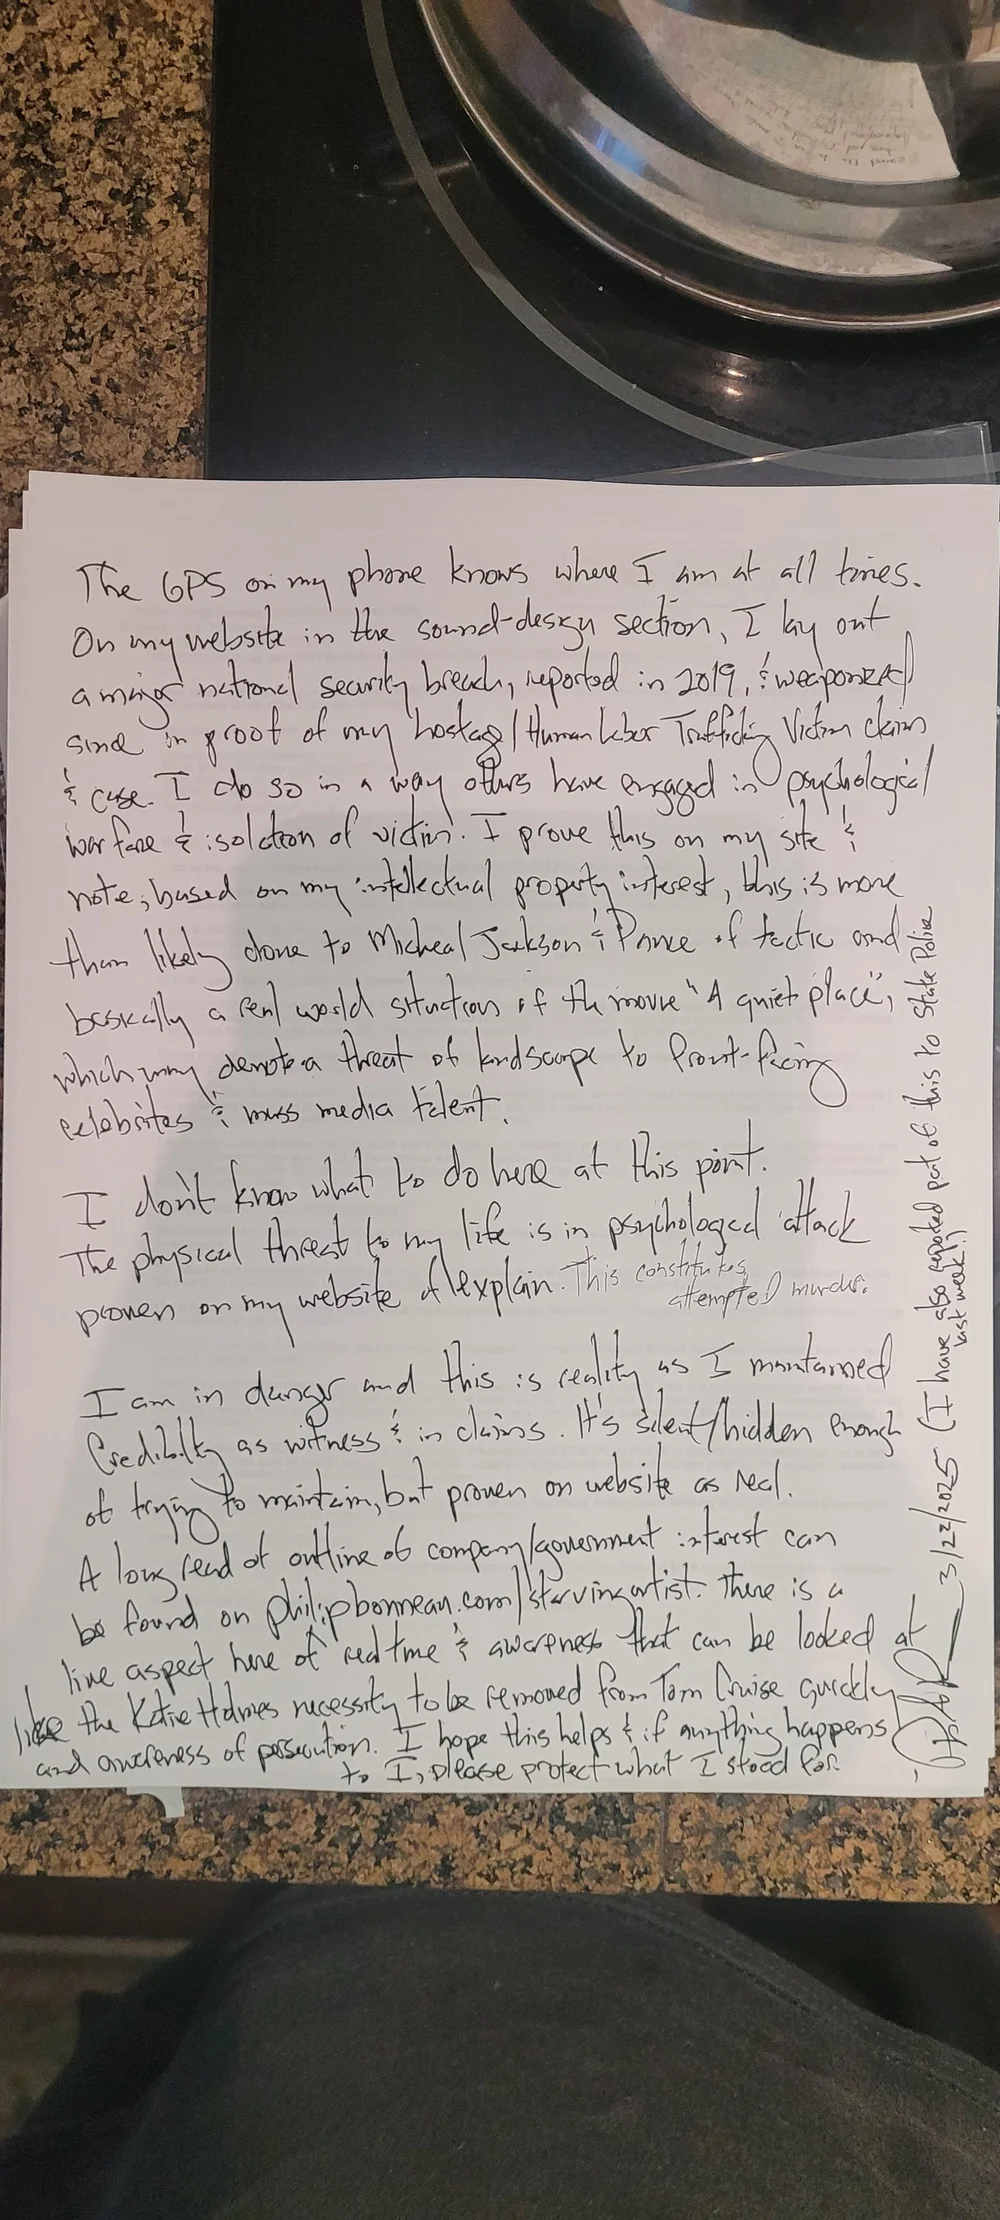 The GPS on my phone knows where I am at all times.
On my website in the sound-design section, I lay out
a major national security breach, reported in 2019, & weaponized
since in proof of my hostage/Human Labor Trafficking Victim claims
& case. I do so in a way others have engaged in psychological
warfare & isolation of victim. I prove this on my site &
note, based on my intellectual property interest, this is more
than likely done to Micheal Jackson & Prince of tactic and
basically a real world situation of the movie "A quiet place",
which may denote a threat of landscape to front-facing
celebrities & mass media talent.
I don't know what to do here at this point.
The physical threat to my life is in psychological attack
proven on my website of explain. This constitutes
attempted murder.
I am in danger and this is reality as I maintained
Credibility as witness & in claims. It's silent/hidden enough
of trying to maintain, but proven on website as real.
A long read of outline of company/government interest can
be found on philipbonnean.com/starvingartist. There is a
live aspect here of real time & awareness that can be looked at
like the Katie Holmes necessity to be removed from Tom Cruise quickly
and awareness of persecution. I hope this helps & if anything happens
to I, please protect what I stood for.
3/22/2025 (I have also reported part of this to State Police
last weak.)